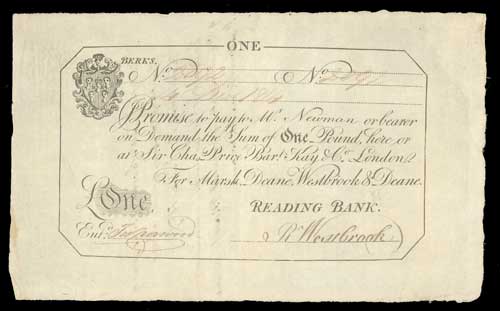 ONE
BERKS.
No. No.
4 Dec 1814
I Promise to pay to Mr. Newman or bearer
on Demand, the Sum of One Pound, here or
at Sir Chas. Price Bart. Kay & Co. London
For Marsh, Deane, Westbrook & Deane.
£One READING BANK.
Entd. R Westbrook